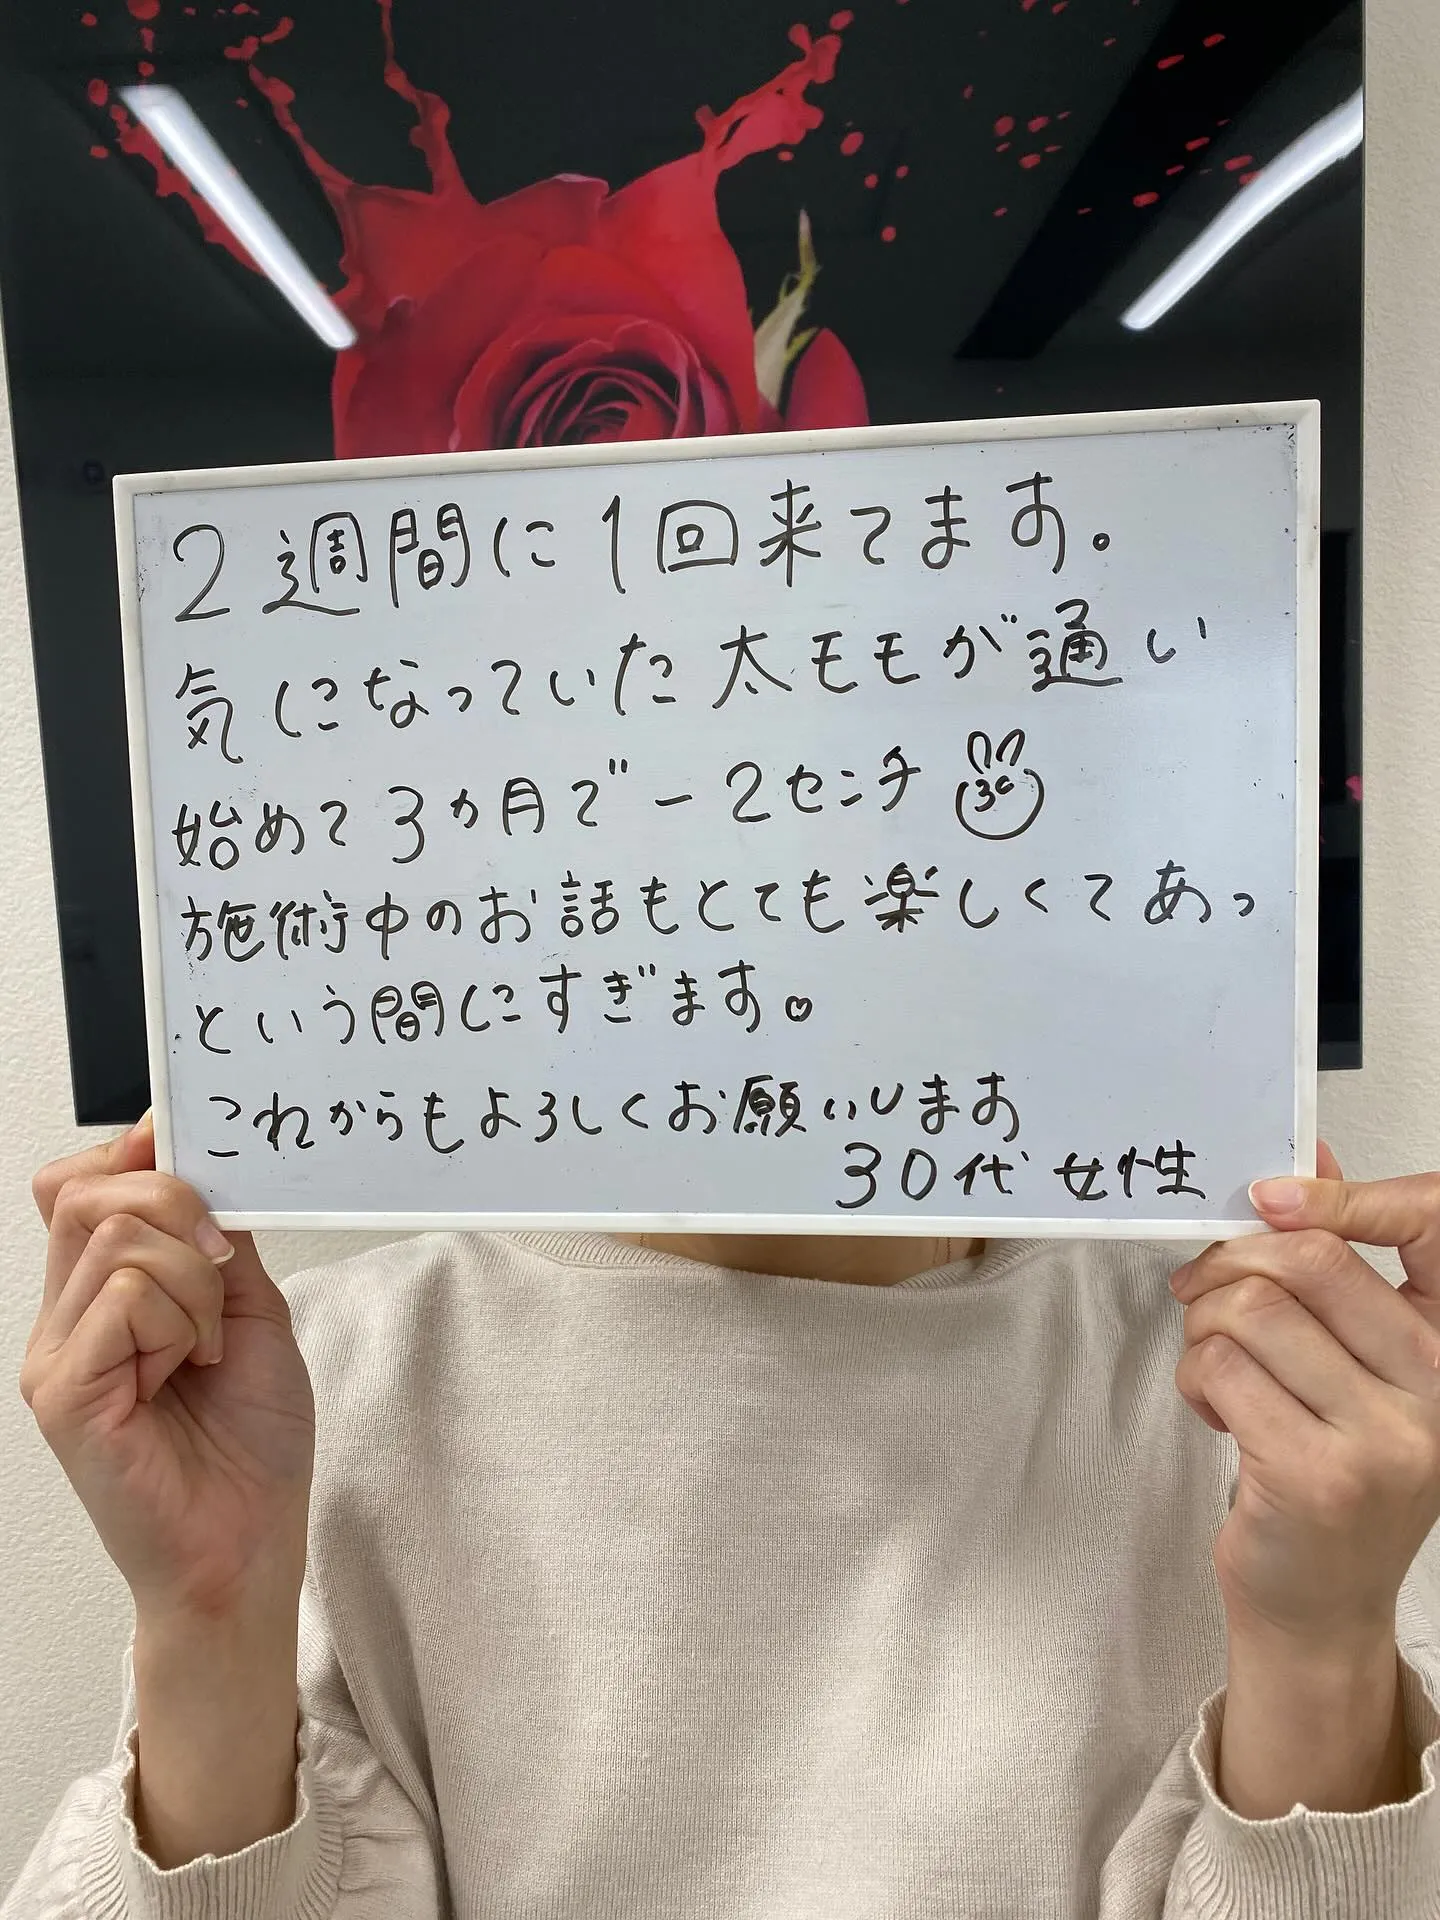 2週間に1回来てます。
気になっていた太モモが通い
始めて3ヵ月で-2センチ
施術中のお話もとても楽しくてあっ
という間にすぎます。
これからもよろしくお願いします
30代 女性